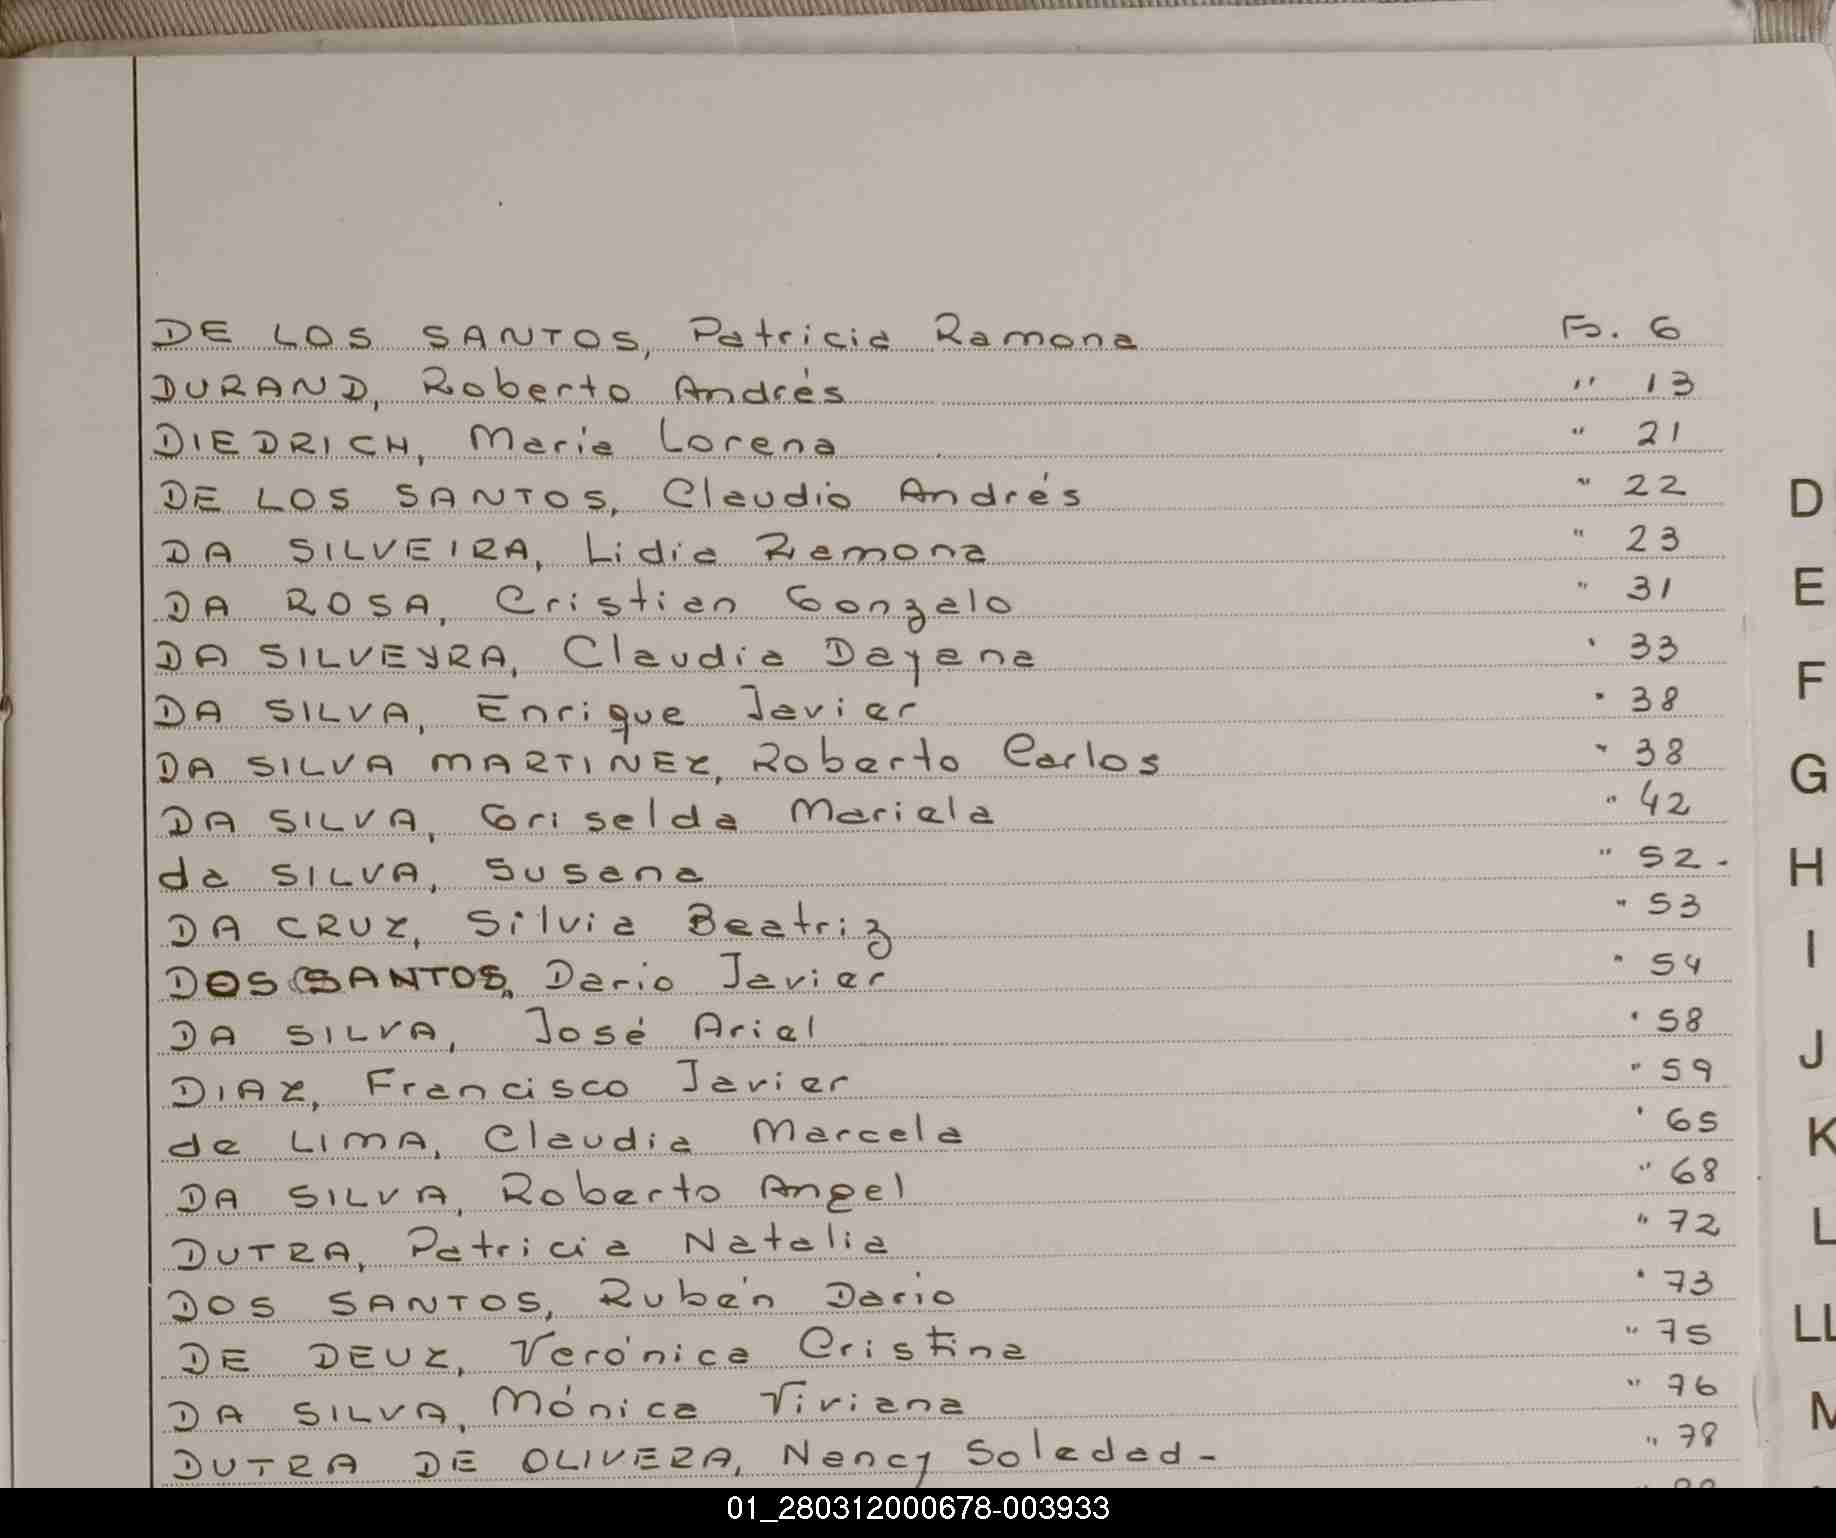 DE LOS SANTOS, Patricia Ramona Fs. 6
DURAND, Roberto Andrés " 13
DIEDRICH, Maria Lorena " 21
DE LOS SANTOS, Claudio Andrés " 22
DA SILVEIRA, Lidia Ramona " 23
DA ROSA, Cristian Gonzalo " 31
DA SILVEYRA, Claudia Dayana " 33
DA SILVA, Enrique Javier " 38
DA SILVA MARTINEZ, Roberto Carlos " 38
DA SILVA, Griselda Mariela " 42
da SILVA, Susana " 52.
DA CRUZ, Silvia Beatriz " 53
DOS SANTOS, Dario Javier " 54
DA SILVA, José Ariel " 58
DIAZ, Francisco Javier " 59
de LIMA, Claudia Marcela " 65
DA SILVA, Roberto Angel " 68
DUTRA, Patricia Natalia " 72
DOS SANTOS, Rubén Dario " 73
DE DEUZ, Verónica Cristina " 75
DA SILVA, Mónica Viviana " 76
DUTRA DE OLIVERA, Nancy Soledad - " 78
D
E
F
G
H
I
J
K
L
LL
M
01_280312000678-003933